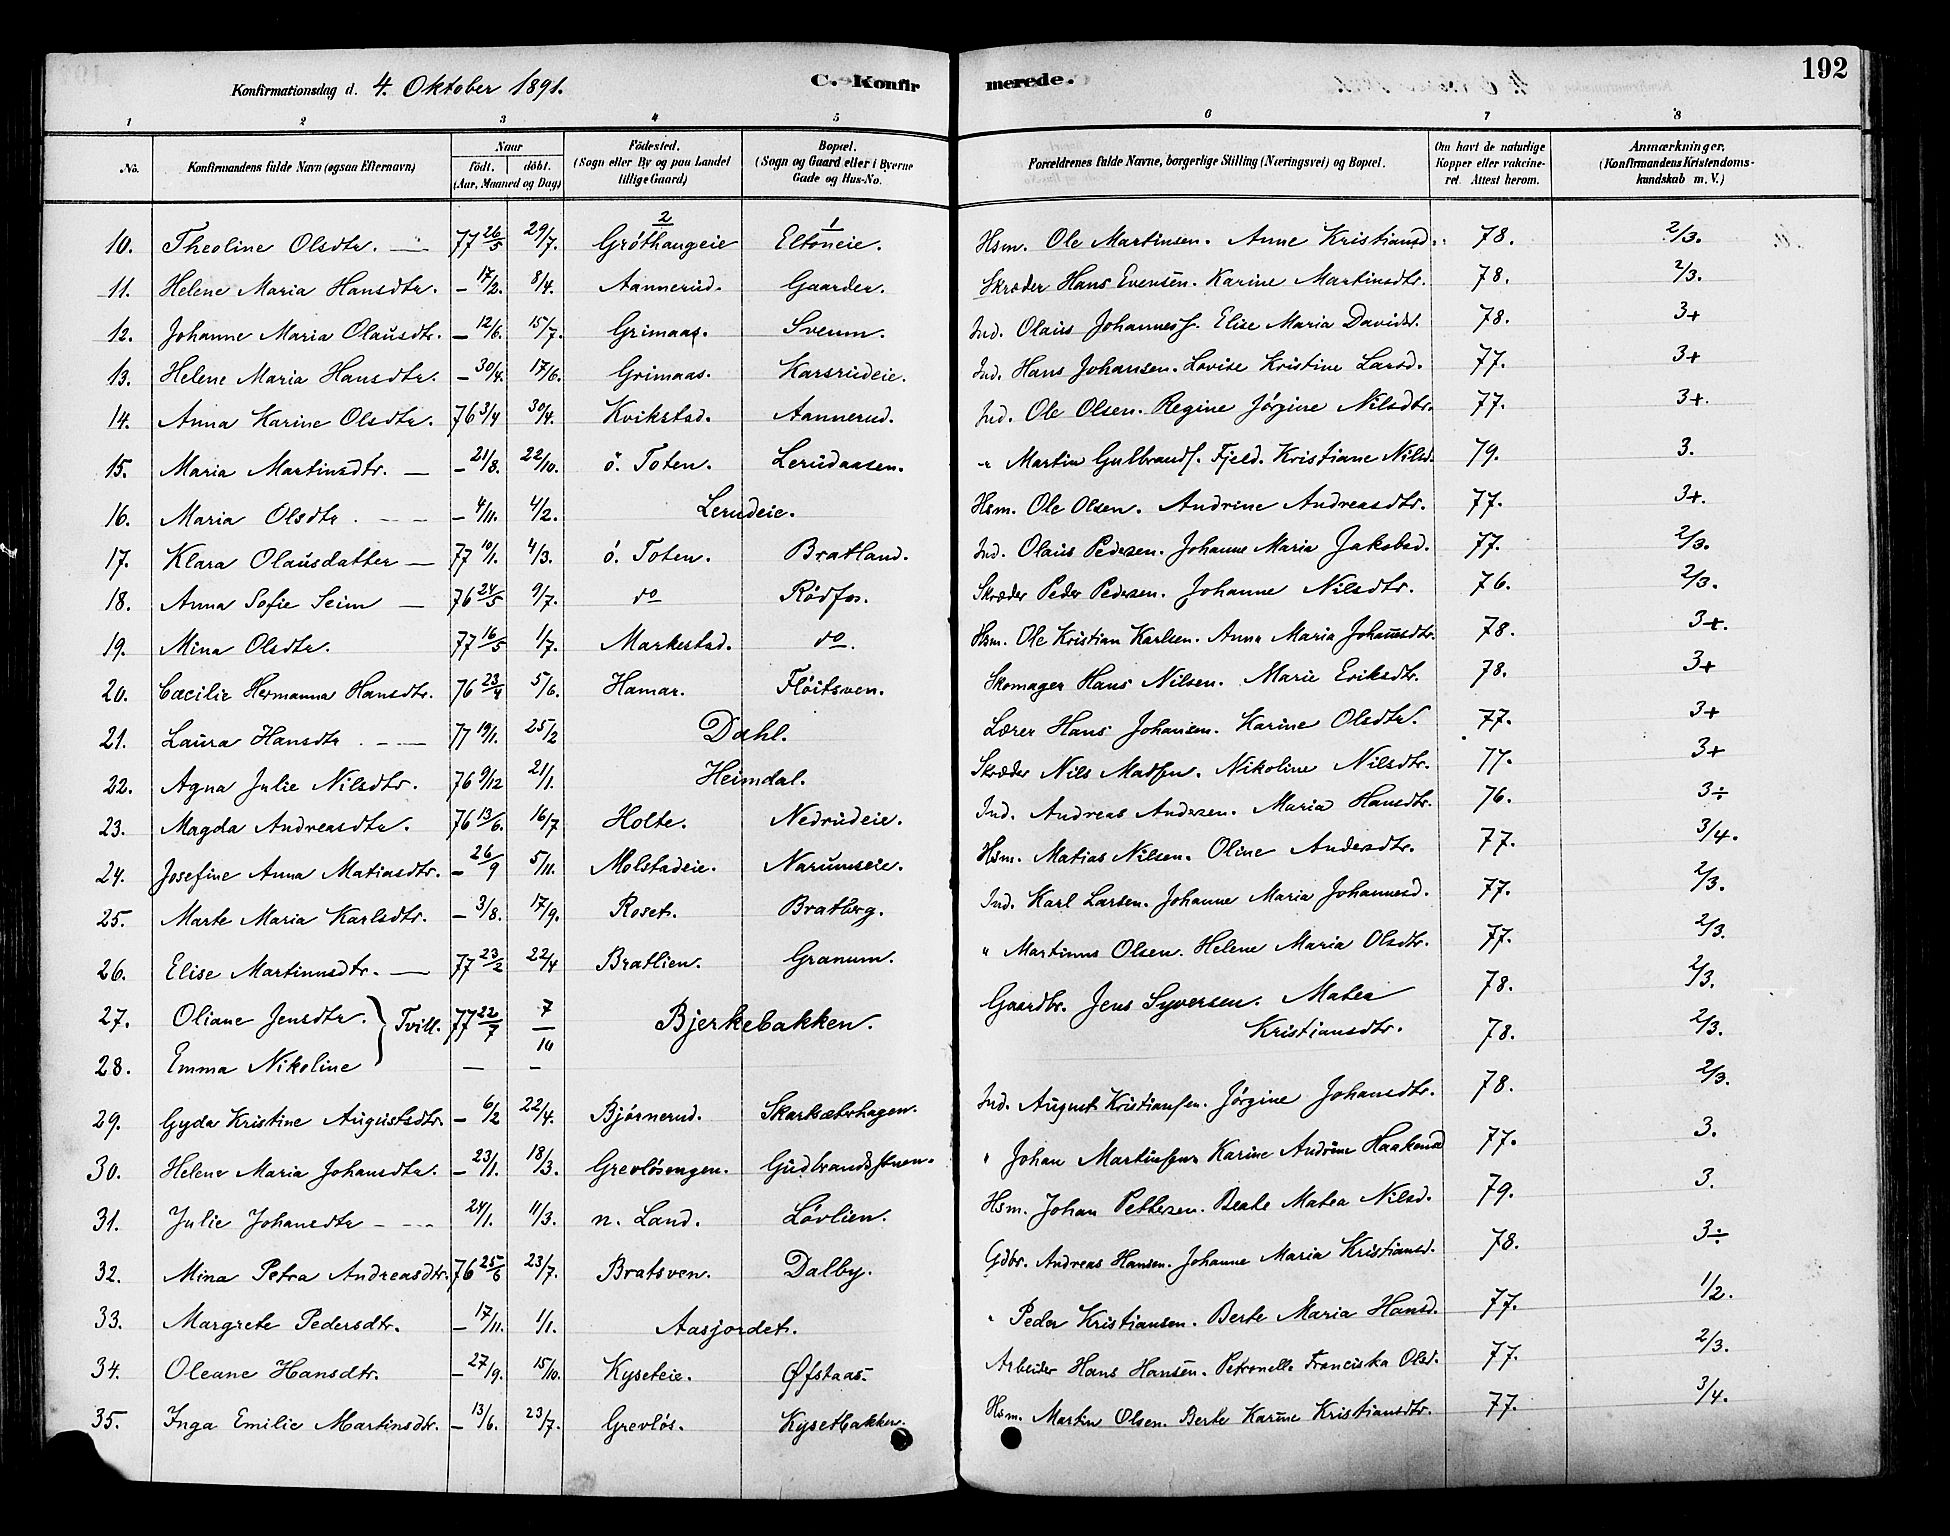 Konfirmationsdag d. 4. Oktober 1891. C. Konfirmerede. 192
1 2 3 4 5 6 7 8
No. Konfirmandens fulde Navn (ogsaa Efternavn) Naar født. døbt. (Aar, Maaned og Dag) Fødested. (Sogn eller By og paa Landet tillige Gaard) Bopæl. (Sogn og Gaard eller i Byerne Gade og Hus-No. Forældrenes fulde Navne, borgerlige Stilling (Næringsvei) og Bopæl. Om havt de naturlige Kopper eller vakcineret. Attest herom. Anmærkninger. (Konfirmandens Kristendomskundskab m. V.)
2 1
10. Theoline Olsdtr. — 77 26/5 29/7. Gróthaugeie Eltoneie. Hsm. Ole Martinsen. Anne Kristiansd. 78. 2/3.
11. Helene Maria Hansdtr. — 17/2. 8/4. Aannerud. Gaarder. Skræder Hans Evensen. Karine Martinsdtr. 78. 2/3.
12. Johanne Maria Olausdtr. — 12/6. 15/7. Grimaas. Sveum. Ind. Olaus Johanness. Elise Maria Davidsd. 78. 3+
13. Helene Maria Hansdtr. — 30/4. 17/6. Grimaas. Karsrudeie. Ind. Hans Johansen. Lovise Kristine Larsd. 77. 3+
14. Anna Karine Olsdtr. 76 3/4 30/4. Kvikstad. Aannerud. Ind. Ole Olsen. Regine Jørgine Nilsdtr. 77. 3+.
15. Maria Martinsdtr. — — 21/8. 22/10. ö. Toten. Lerudaasen. " Martin Gulbrands. Fjeld. Kristiane Nilsd. 79. 3.
16. Maria Olsdtr. — 4/11. 4/2. Lerudeie. Hsm. Ole Olsen. Andrine Andreasdtr. 77. 3+.
17. Klara Olausdatter — 77 10/1. 4/3. ö. Toten. Bratland. Ind. Olaus Pedersen. Johanne Maria Jakobsd. 77. 2/3.
18. Anna Sofie Seim — 76 24/5 9/7. do Rødfos. Skræder Peder Pedersen. Johanne Nilsdtr. 76. 2/3.
19. Mina Olsdtr. 77 16/5 1/7. Markestad. do. Hsm. Ole Kristian Karlsen. Anna Maria Johansdtr. 78. 3+.
20. Cæcilie Hermanna Hansdtr. 76 23/4 5/6. Hamar. Flöitsven. Skomager Hans Nilsen. Marie Eriksdtr. 78. 3+
21. Laura Hansdtr. 77 19/1. 25/2 Dahl. Lærer Hans Johansen. Karine Olsdtr. 77. 3+
22. Agna Julie Nilsdtr. 76 9/12 21/1. Heimdal. Skræder Nils Madsen. Nikoline Nilsdtr. 77. 3+
23. Magda Andreasdtr. 76 13/6. 16/7 Holte. Nedrudeie. Ind. Andreas Andersen. Maria Hansdtr. 76. 3÷
24. Josefine Anna Matiasdtr. — 26/9 5/11. Molstadeie. Narumseie. Hsm. Matias Nilsen. Oline Andersdtr. 77. 3/4.
25. Marte Maria Karlsdtr. — 3/8. 17/9. Roset. Bratberg. Ind. Karl Larsen. Johanne Maria Johannesd. 77. 2/3.
26. Elise Martinusdtr. — 77 23/2 22/4 Bratlien. Granum. " Martinus Olsen. Helene Maria Olsdtr. 77. 2/3.
27. Oliane Jensdtr. } Tvill. 77 22/7 7/10 Bjerkebakken. Gaardbr. Jens Syversen. Matea 78. 2/3.
28. Emma Nikoline — — Kristiansdtr. 78. 2/3.
29. Gyda Kristine Augustsdtr. — 6/2 22/4. Bjørnerud. Skarsætrhagen. Ind. August Kristiansen. Jørgine Johansdtr. 78. 2/3.
30. Helene Maria Johansdtr. — 23/1. 18/3. Grevlösengen. Gudbrandsstuen. " Johan Martinsen. Karine Andrine Haakensd 77. 3.
31. Julie Johansdtr — 24/1. 11/3. n. Land. Lövlien. Hsm. Johan Pettersen. Beate Matea Nilsd. 79. 3.
32. Mina Petra Andreasdtr. 76 25/6 23/7. Bratsven. Dalby. Gdbr. Andreas Hansen. Johanne Maria Kristiansd. 78. 3÷
33. Margrete Pedersdtr. — 17/11. 1/1. Aasjordet. " Peder Kristiansen. Berte Maria Hansd. 77. 1/2.
34. Oleane Hansdtr. — 27/9. 15/10. Kyseteie. Øfstaas. Arbeider Hans Hansen. Petronelle Franciska Olsd. 77. 2/3.
35. Inga Emilie Martinsdtr. — 13/6. 23/7. Grevlös. Kysetbakken. Hsm. Martin Olsen. Berte Karine Kristiansdtr. 77. 3/4.